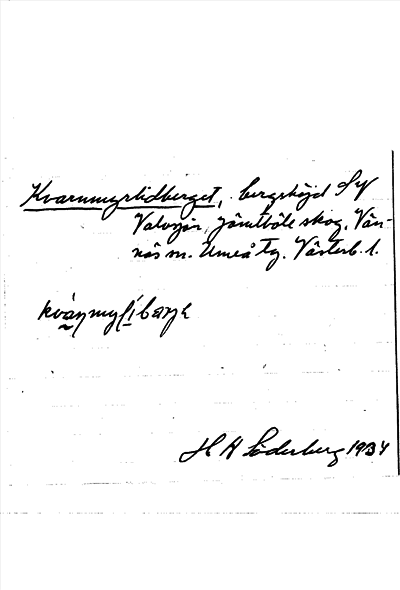 Kvarnmyrlidberget, bergshöjd SV
Valvsjön, Jämtböle skog, Vän-
näs sn. Umeå tg. Västerb. l.
H A Söderberg 1934